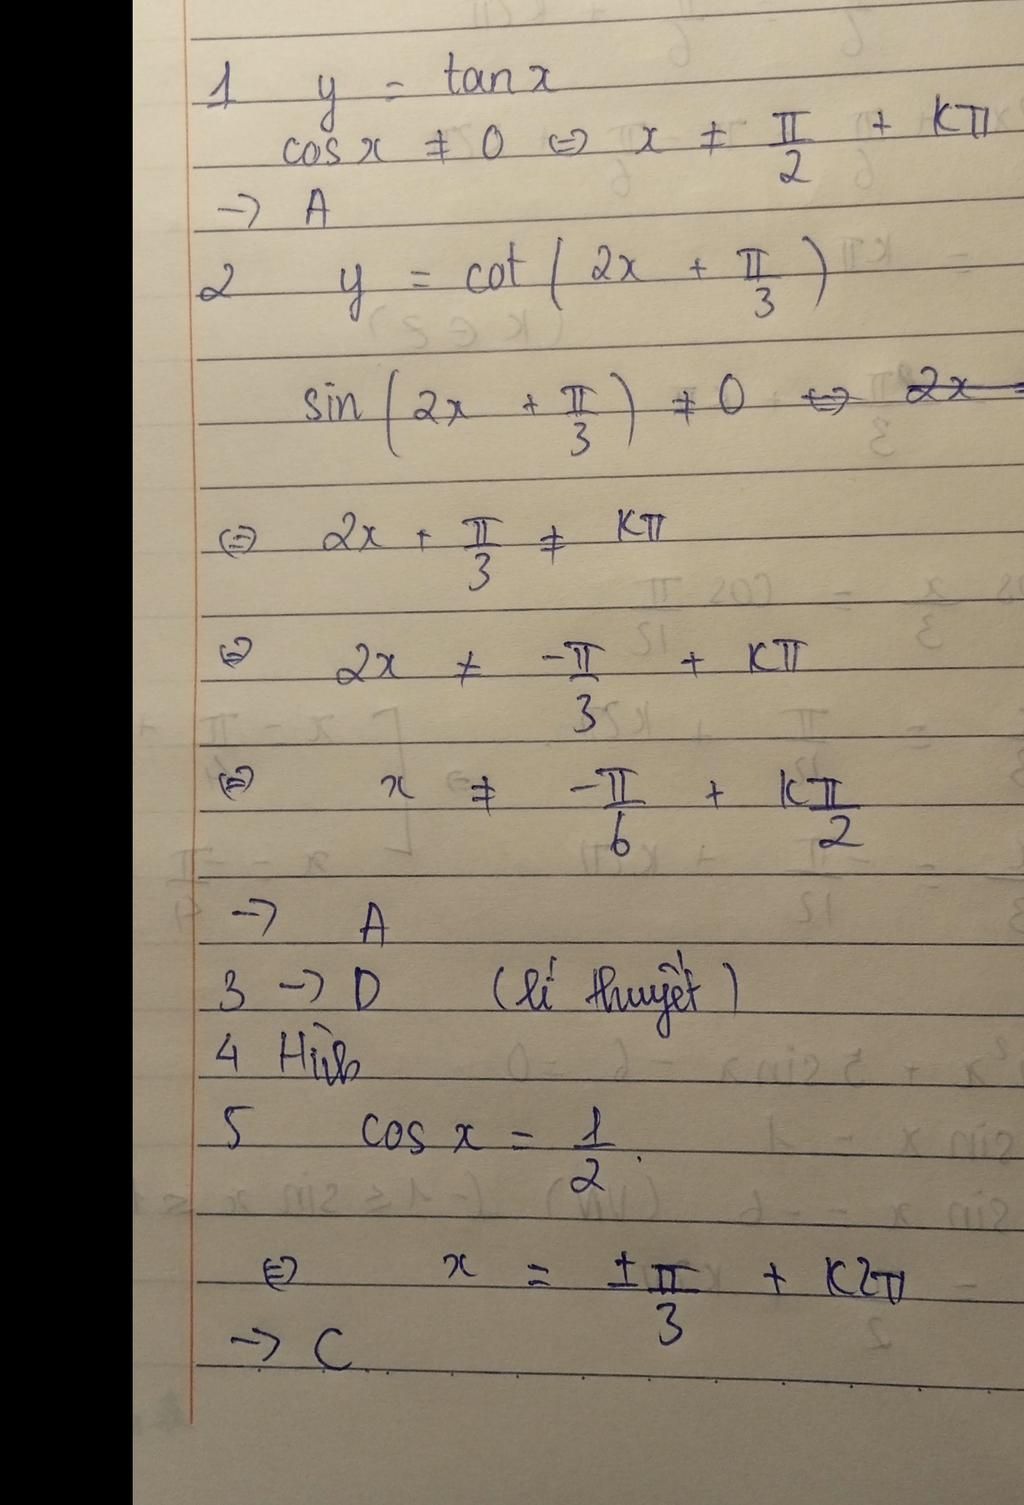 1 y = tan x
cos x ≠ 0 ⇔ x ≠ π/2 + kπ
→ A
2 y = cot(2x + π/3)
sin(2x + π/3) ≠ 0 ⇔ 2x =
⇔ 2x + π/3 ≠ kπ
⇔ 2x ≠ -π/3 + kπ
⇔ x ≠ -π/6 + kπ/2
→ A
3 → D (lí thuyết)
4 Hình
5 cos x = 1/2.
⇔ x = ±π/3 + k2π
→ C